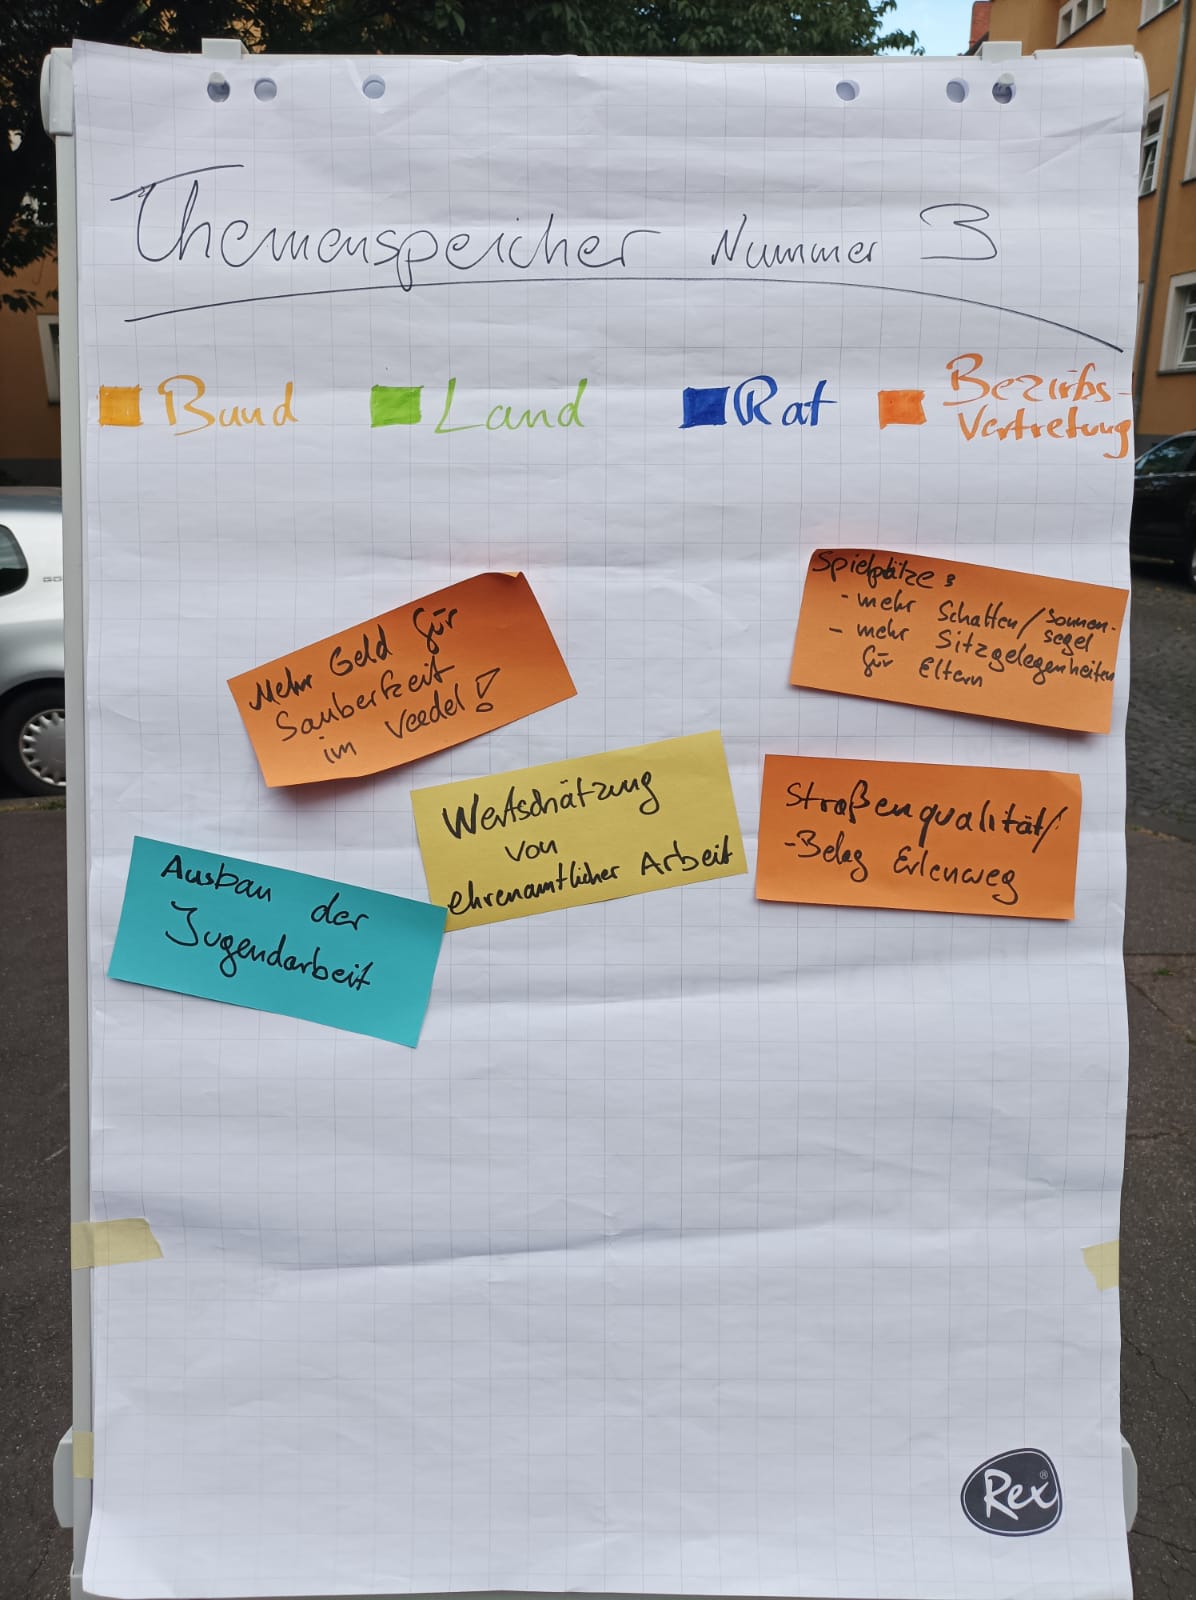 Themenspeicher Nummer 3
Bund
Land
Rat
Bezirks-
Vertretung
Mehr Geld für
Sauberkeit
im Veedel!
Spielplätze:
- mehr Schatten/Sonnen-
segel
- mehr Sitzgelegenheiten
für Eltern
Wertschätzung
von
ehrenamtlicher Arbeit
Straßenqualität/
-Belag Erlenweg
Ausbau der
Jugendarbeit
Rex®